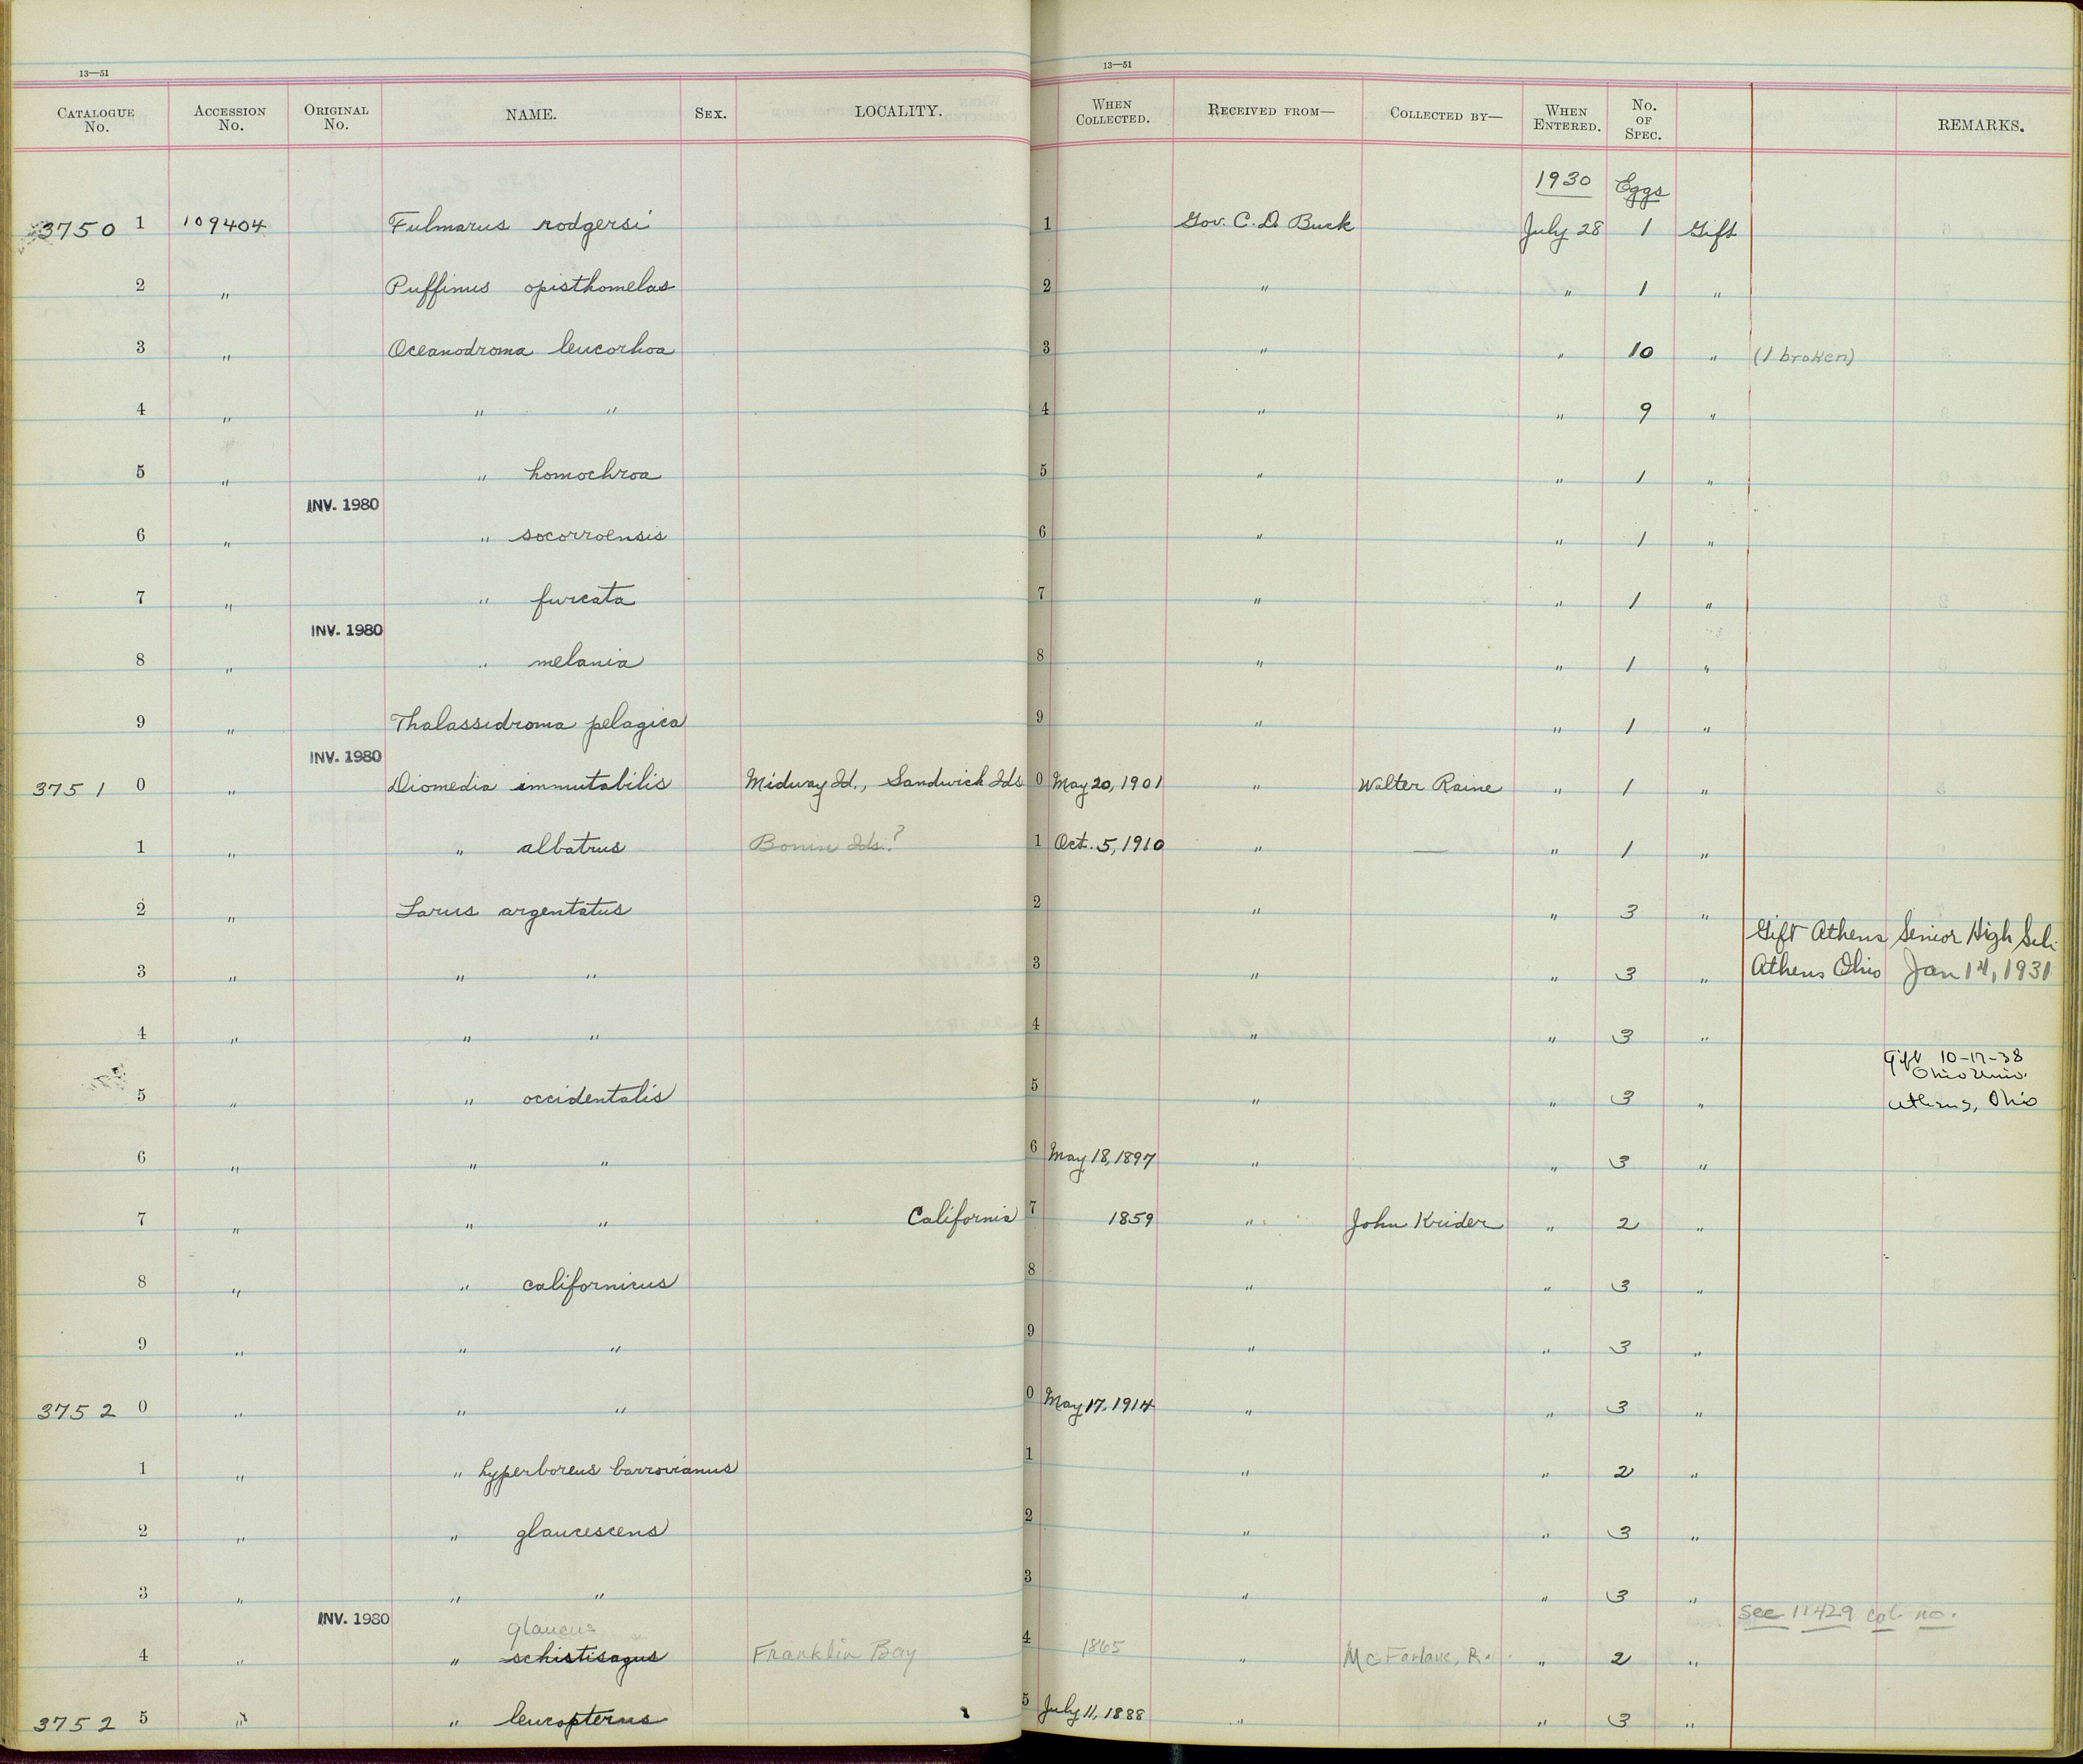 13—51 13—51
CATALOGUE No. ACCESSION No. ORIGINAL No. NAME. SEX. LOCALITY. WHEN COLLECTED. RECEIVED FROM— COLLECTED BY— WHEN ENTERED. No. OF SPEC. REMARKS.
1930 Eggs
3750 1 109404 Fulmarus rodgersi 1 Gov. C. D. Buck July 28 1 Gift
2 " Puffinus opisthomelas 2 " " 1 "
3 " Oceanodroma leucorhoa 3 " " 10 " (1 broken)
4 " " " 4 " " 9 "
5 " " homochroa 5 " " 1 "
INV. 1980
6 " " socorroensis 6 " " 1 "
7 " " furcata 7 " " 1 "
INV. 1980
8 " " melania 8 " " 1 "
9 " Thalassidroma pelagica 9 " " 1 "
INV. 1980
3751 0 " Diomedia immutabilis Midway Id., Sandwich Ids 0 May 20, 1901 " Walter Raine " 1 "
1 " " albatrus Bonin Ids.? 1 Oct. 5, 1910 " — " 1 "
2 " Larus argentatus 2 " " 3 "
Gift Athens Senior High Sch.
3 " " " 3 " " 3 " Athens Ohio Jan 14, 1931
4 " " " 4 " " 3 "
Gift 10-17-38
Ohio Univ.
5 " " occidentalis 5 " " 3 " Athens, Ohio
6 " " " 6 May 18, 1897 " " 3 "
7 " " " California 7 1859 " John Krider " 2 "
8 " " californicus 8 " " 3 "
9 " " " 9 " " 3 "
3752 0 " " " 0 May 17, 1914 " " 3 "
1 " " hyperboreus barrovianus 1 " " 2 "
2 " " glaucescens 2 " " 3 "
3 " " " 3 " " 3 "
INV. 1980 see 11429 cat. no.
glaucus
4 " " schistisagus Franklin Bay 4 1865 " McFarlane, R. " 2 "
3752 5 " " leucopterus 5 July 11, 1888 " " 3 "